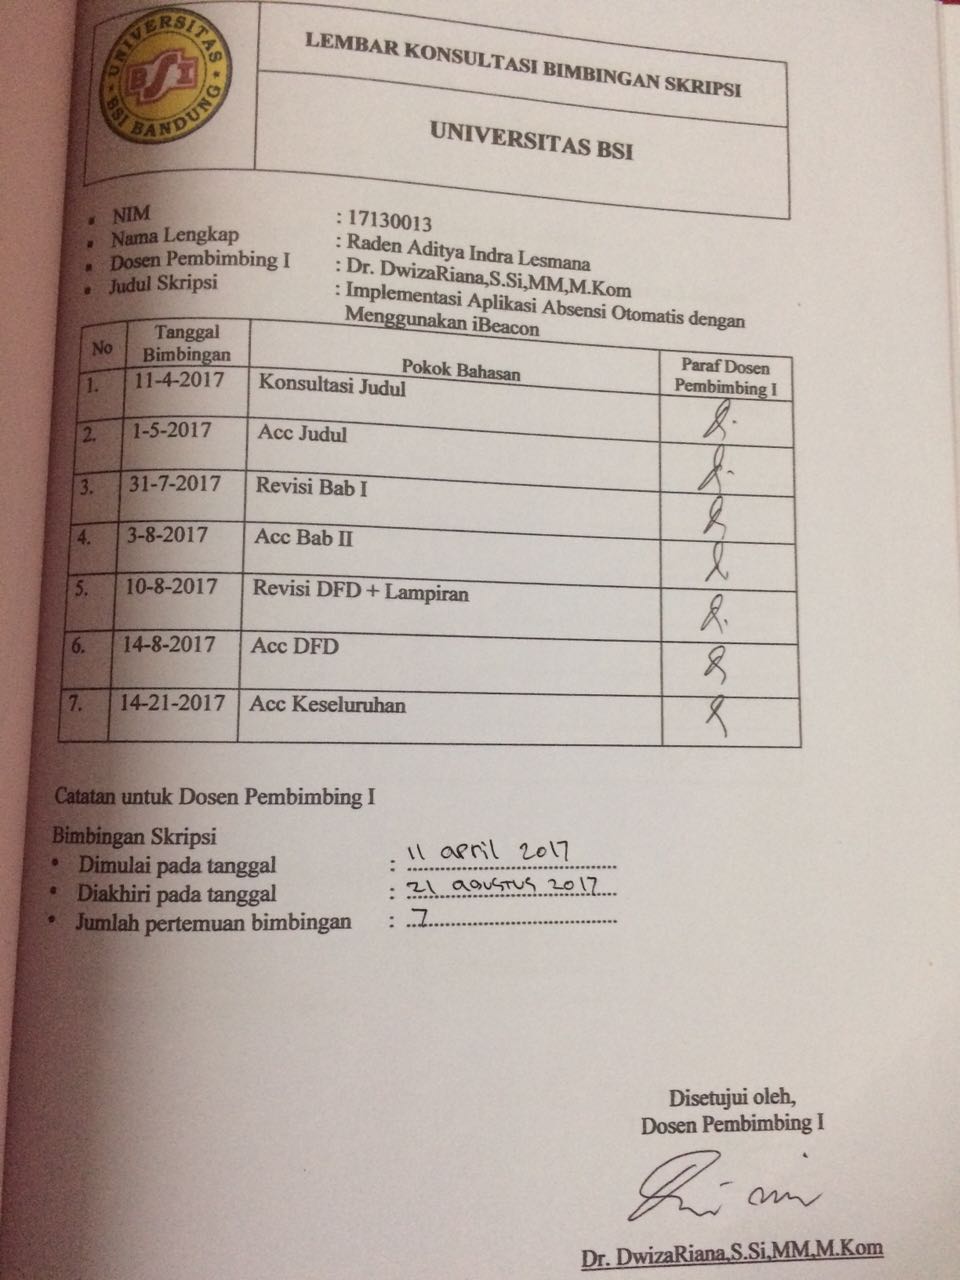 UNIVERSITAS
BSI
BSI BANDUNG
LEMBAR KONSULTASI BIMBINGAN SKRIPSI
UNIVERSITAS BSI
▪ NIM : 17130013
▪ Nama Lengkap : Raden Aditya Indra Lesmana
▪ Dosen Pembimbing I : Dr. DwizaRiana,S.Si,MM,M.Kom
▪ Judul Skripsi : Implementasi Aplikasi Absensi Otomatis dengan
Menggunakan iBeacon
No Tanggal Bimbingan Pokok Bahasan Paraf Dosen Pembimbing I
1. 11-4-2017 Konsultasi Judul
2. 1-5-2017 Acc Judul
3. 31-7-2017 Revisi Bab I
4. 3-8-2017 Acc Bab II
5. 10-8-2017 Revisi DFD + Lampiran
6. 14-8-2017 Acc DFD
7. 14-21-2017 Acc Keseluruhan
Catatan untuk Dosen Pembimbing I
Bimbingan Skripsi
• Dimulai pada tanggal : 11 april 2017
• Diakhiri pada tanggal : 21 agustus 2017
• Jumlah pertemuan bimbingan : 7
Disetujui oleh,
Dosen Pembimbing I
Dr. DwizaRiana,S.Si,MM,M.Kom